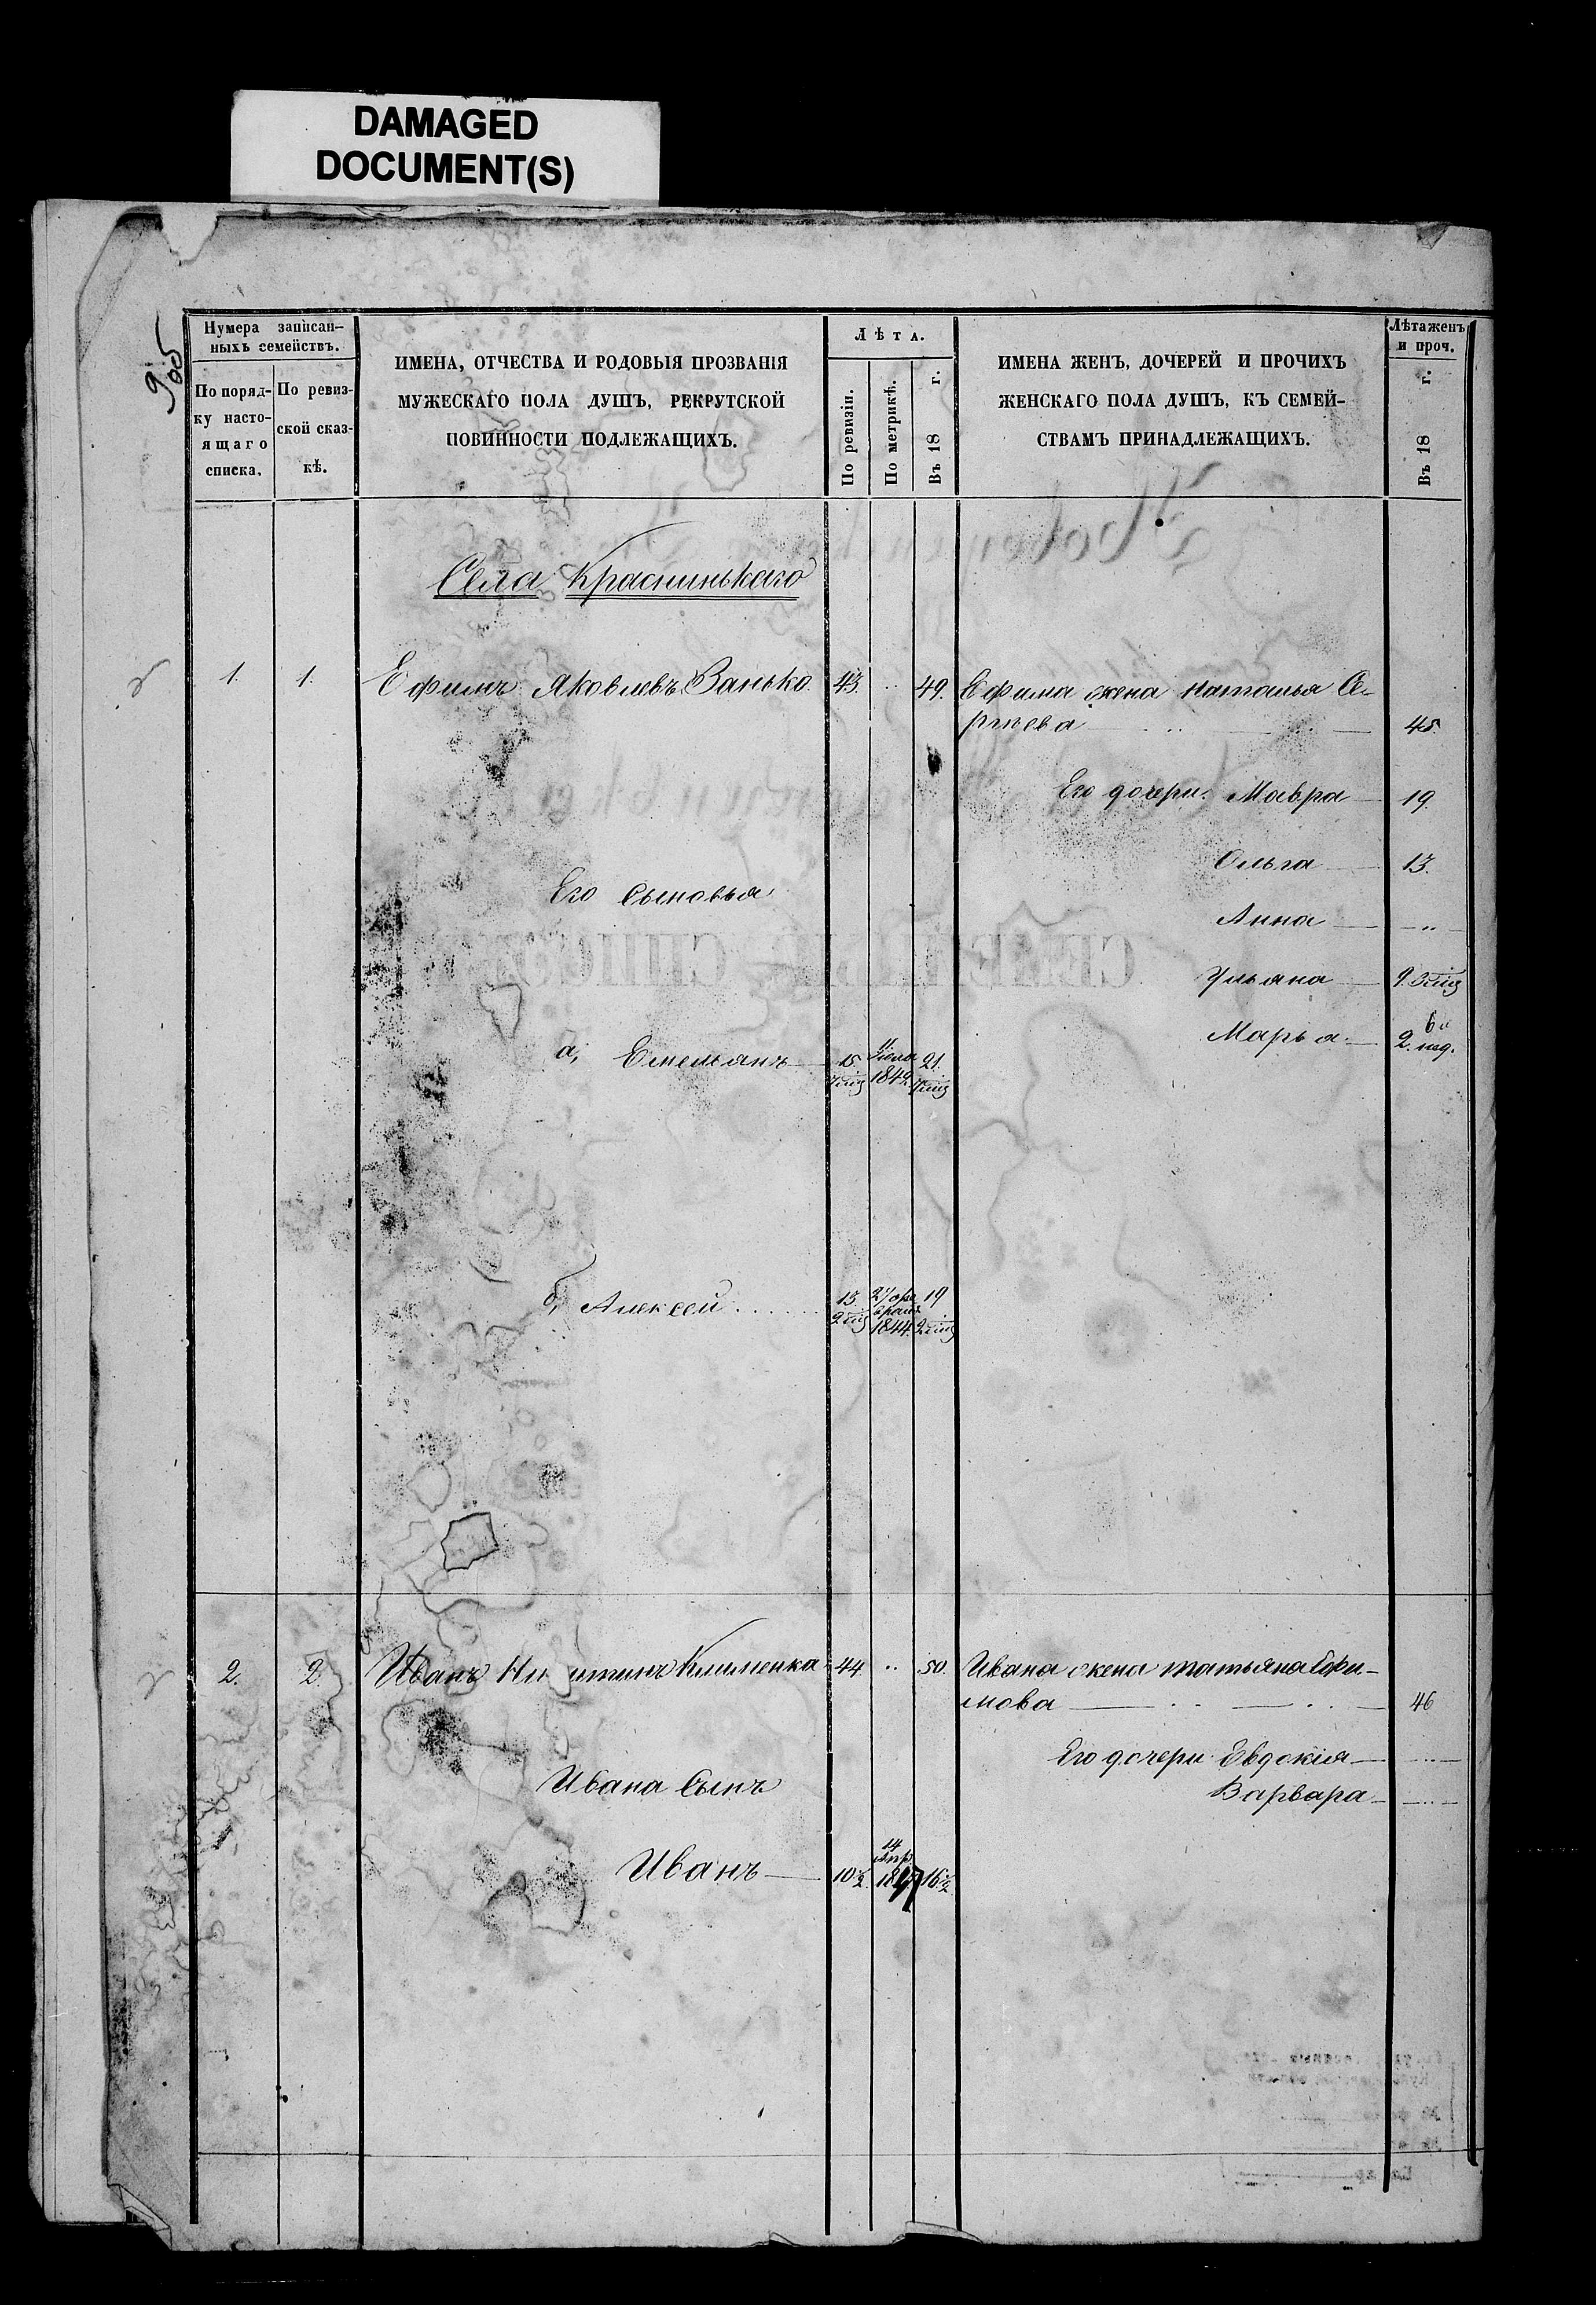 DAMAGED
DOCUMENT(S)
Нумера записан-
ныхъ семействъ.
По поряд-
ку насто-
ящаго
списка.
По ревиз-
ской сказ-
кѣ.
ИМЕНА, ОТЧЕСТВА И РОДОВЫЯ ПРОЗВАНІЯ
МУЖЕСКАГО ПОЛА ДУШЪ, РЕКРУТСКОЙ
ПОВИННОСТИ ПОДЛЕЖАЩИХЪ.
Лѣта.
По ревизіи.
По метрикѣ.
Въ 18 г.
ИМЕНА ЖЕНЪ, ДОЧЕРЕЙ И ПРОЧИХЪ
ЖЕНСКАГО ПОЛА ДУШЪ, КЪ СЕМЕЙ-
СТВАМЪ ПРИНАДЛЕЖАЩИХЪ.
Лѣта женъ
и проч.
Въ 18 г.
Села Краснинькаго
1. 1. Ефимъ Яковлевъ Ванько. 43. .. 49. Ефима жена Наталья Се-
ргѣева 45.
Его дочери: Мавра 19.
Ольга 13.
Его Сыновья
Анна — „ —
Ульяна
Марья. 2. нед.
а, Емельянъ 15. 11 Іюля 1842 21.
б, Алексей 13. 1844. 19
2. 2. Иванъ Клименка 44 .. 50. Ивана жена Татьяна Ефи-
мова 46
Его дочери: Евдокія
Ивана Сынъ
Варвара
Иванъ 10½ 14 Апр 1847 16½